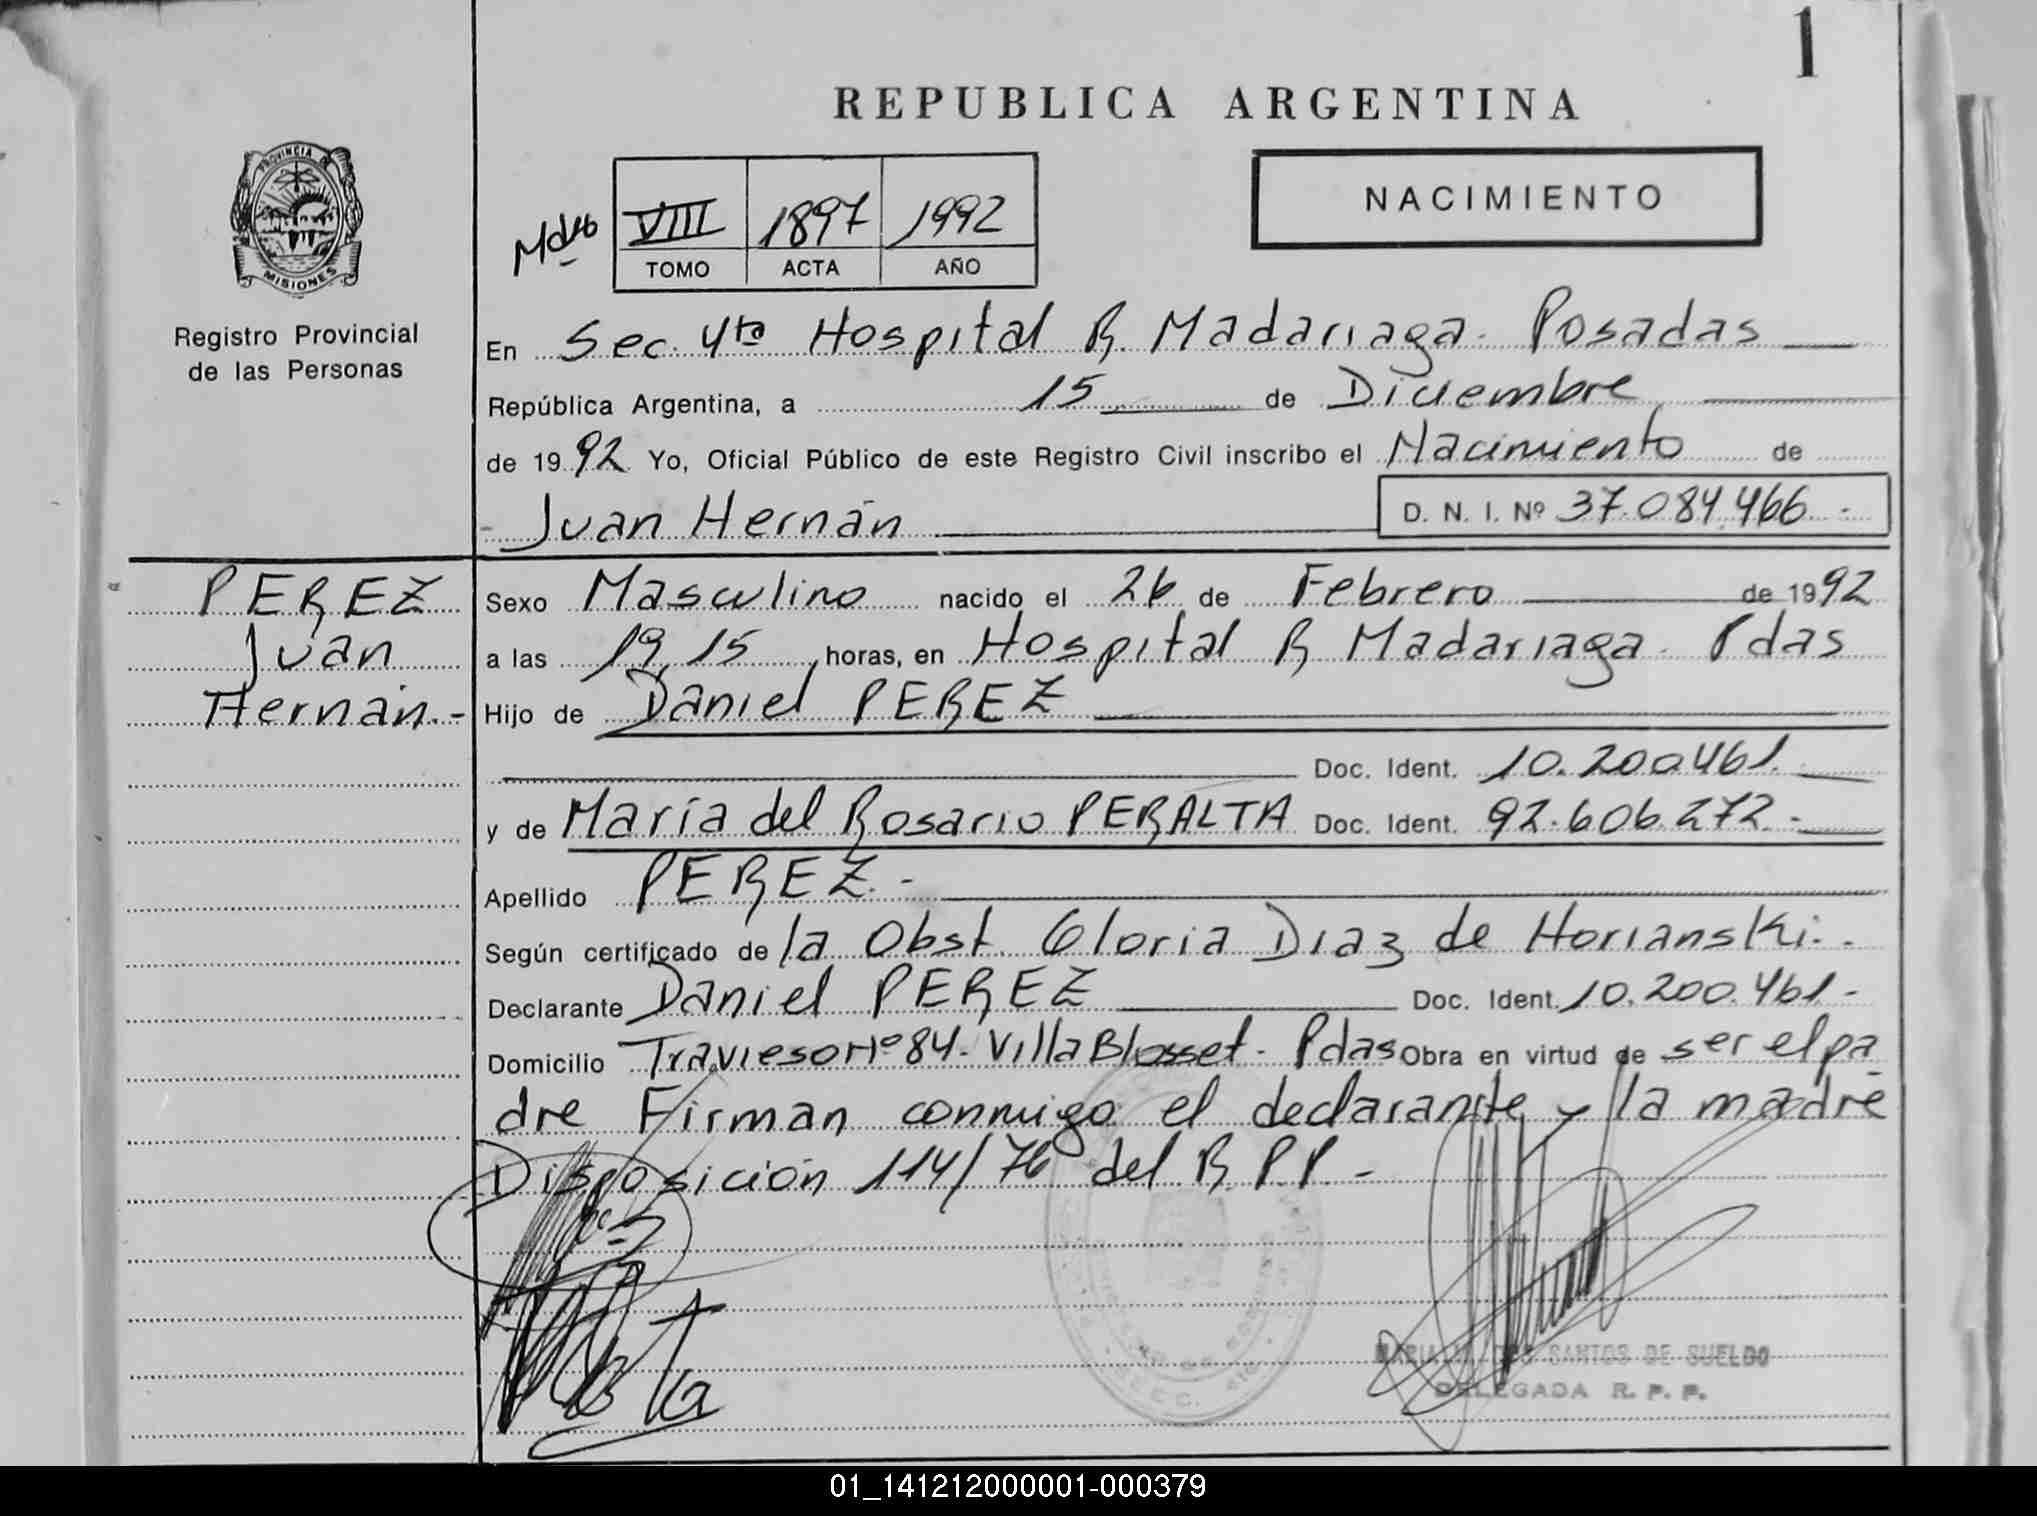 1
REPUBLICA ARGENTINA
PROVINCIA DE
MISIONES
Registro Provincial
de las Personas
VIII 1897 1992
TOMO ACTA AÑO
NACIMIENTO
En Sec. 4ta Hospital R. Madariaga. Posadas
República Argentina, a 15 de Diciembre
de 1992 Yo, Oficial Público de este Registro Civil inscribo el Nacimiento de
Juan Hernán D. N. I. Nº 37.084.466 -
PEREZ
Juan
Hernán.-
Sexo Masculino nacido el 26 de Febrero de 1992
a las 19,15 horas, en Hospital R. Madariaga. Pdas
Hijo de Daniel PEREZ
Doc. Ident. 10.200.461.
y de María del Rosario PERALTA Doc. Ident. 92.606.272.-
Apellido PEREZ.-
Según certificado de la Obst. Gloria Diaz de Horianski.-
Declarante Daniel PEREZ Doc. Ident. 10.200.461.-
Domicilio Travieso Nº 84. Villa Blosset. Pdas Obra en virtud de ser el pa
dre Firman conmigo el declarante y la madre
Disposición 114/76 del R.P.P.-
SANTOS DE SUELDO
DELEGADA R. P. P.
01_141212000001-000379